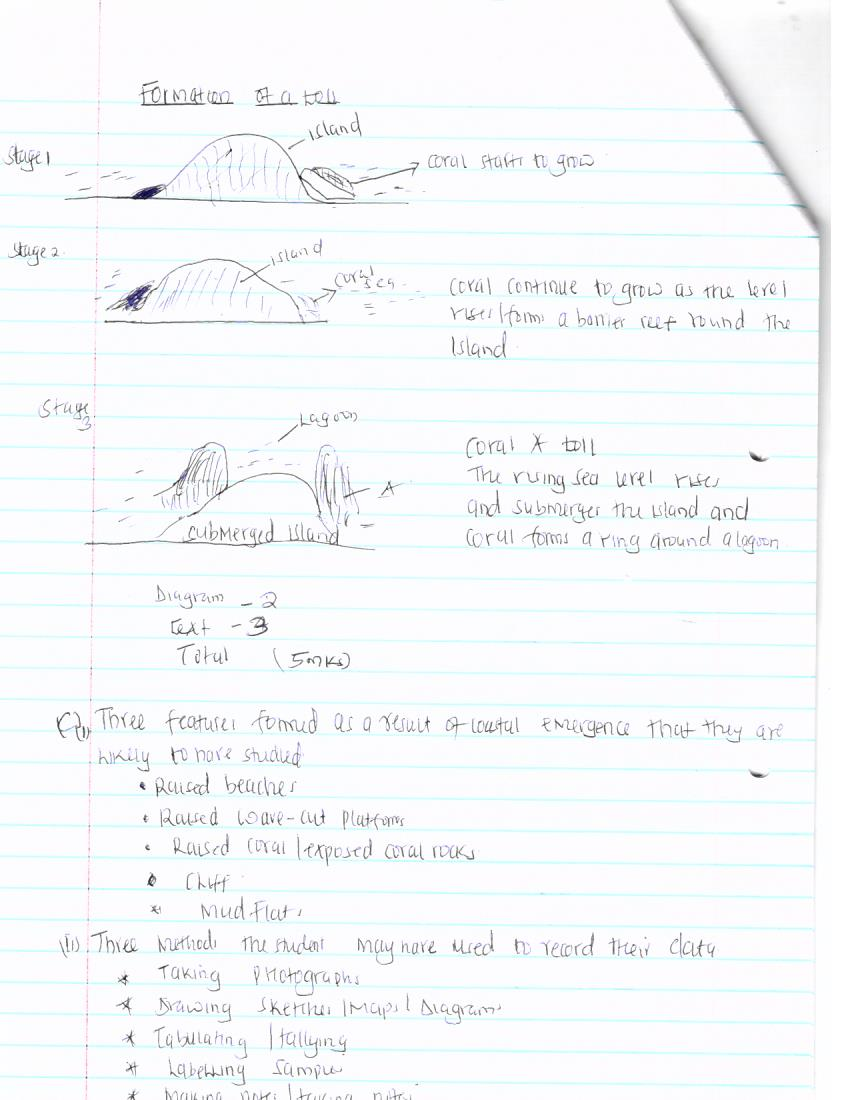 Formation of a toll
Island
Stage 1
coral starts to grow
Stage 2.
island
coral
sea
coral continue to grow as the level
rises/forms a barrier reef round the
Island
Stage
3
Lagoon
Coral A toll
The rising sea level rises
and submerges the island and
coral forms a ring around a lagoon
A
submerged island
Diagram - 2
text - 3
Total (5mks)
(i) Three features formed as a result of coastal emergence that they are
likely to have studied
• Raised beaches
• Raised wave-cut platforms
• Raised coral/exposed coral rocks
• Cliff
* Mud Flats
(ii) Three methods the student may have used to record their data
* Taking photographs
* Drawing sketches/Maps/Diagrams
* Tabulating/tallying
* Labelling sample
* Making notes/taking notes